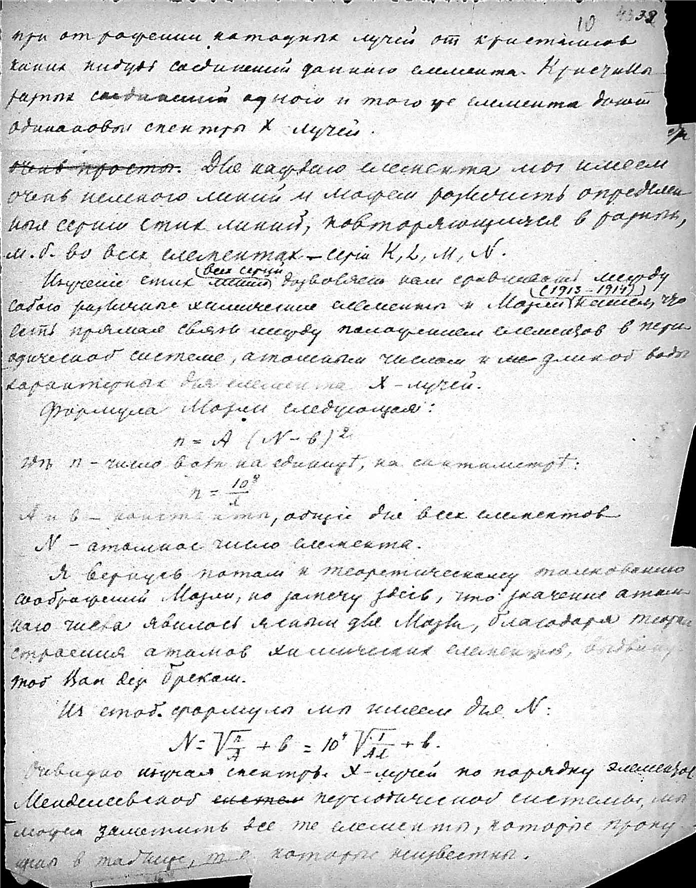 10 38
при отражении катодных лучей от кристаллов
каких нибудь соединений данного элемента. Кристаллы
разных соединений одного и того же элемента дают
одинаковые спектры X лучей.
очень просты. Для каждого элемента мы имеем
очень немного линий и можем различить определен
ные серии этих линий, повторяющиеся в разных,
м.б. во всех элементах – серiи K, L, M, N.
Изучение этих всех серий линий дозволяет нам сравнивать между
собою различные химические элементы и Мозли (1913–1914) нашел, что
есть прямая связь между положением элементов в пери
одической системе, атомным числом и длиной волн
характерных для элемента X-лучей.
Формула Мозли следующая:
n = A (N – b)²
где n – число волн на единицѣ, на сантиметрѣ:
n = 10⁸/λ
A и b – константы, общiе для всех элементов
N – атомное число элемента.
Я вернусь потом к теоретическому толкованию
соображений Мозли, но замечу здесь, что значение атом
ного числа явилось ясным для Мозли, благодаря теории
строения атомов химических элементов, выдвину
той Ван дер Бреком.
Из этой формулы мы имеем для N:
N = √n/A + b = 10⁴ √1/Aλ + b.
Очевидно изучая спектры X-лучей по порядку элементов
Менделеевской систем периодической системы, мы
можем заметить все те элементы, которые пропу
щены в таблице, т.е. которые неизвестны.